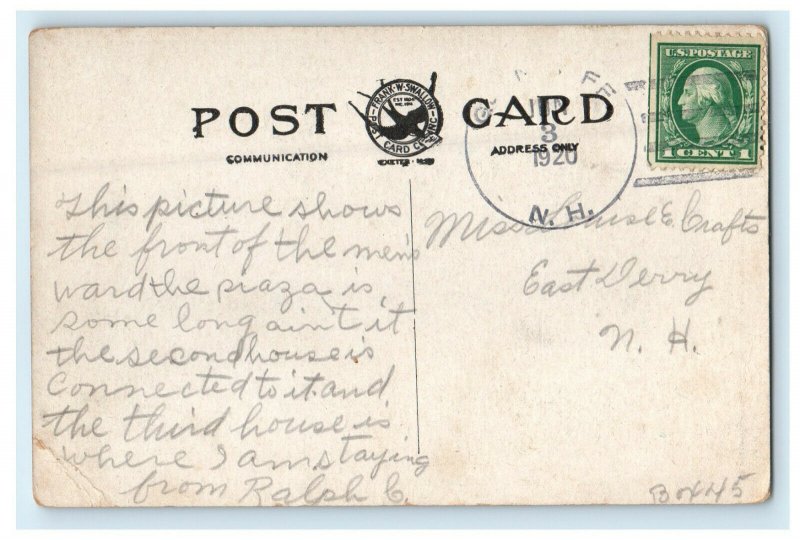 POST CARD
COMMUNICATION
ADDRESS ONLY
FRANK W. SWALLOW
POST CARD CO. INC.
EXETER
U.S. POSTAGE
1 CENT 1
3
1920
N. H.
This picture shows
the front of the men's
ward the piaza is
some long ain't it
the second house is
Connected to it and
the third house is
where I am staying
from Ralph C.
Miss Louise E. Crafts
East Derry
N. H.
Box 45